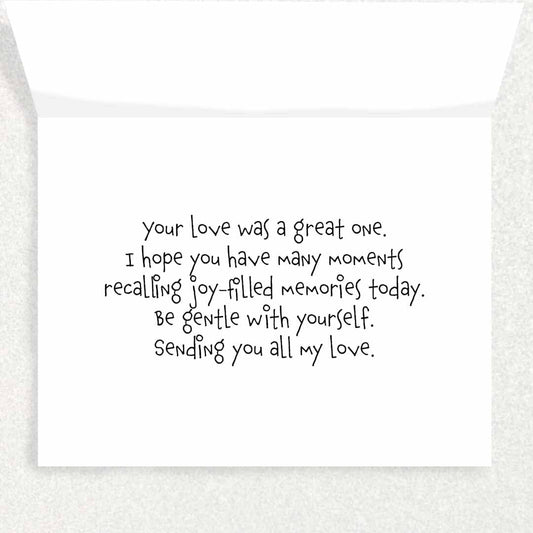 Your love was a great one.
I hope you have many moments
recalling joy-filled memories today.
Be gentle with yourself.
Sending you all my love.